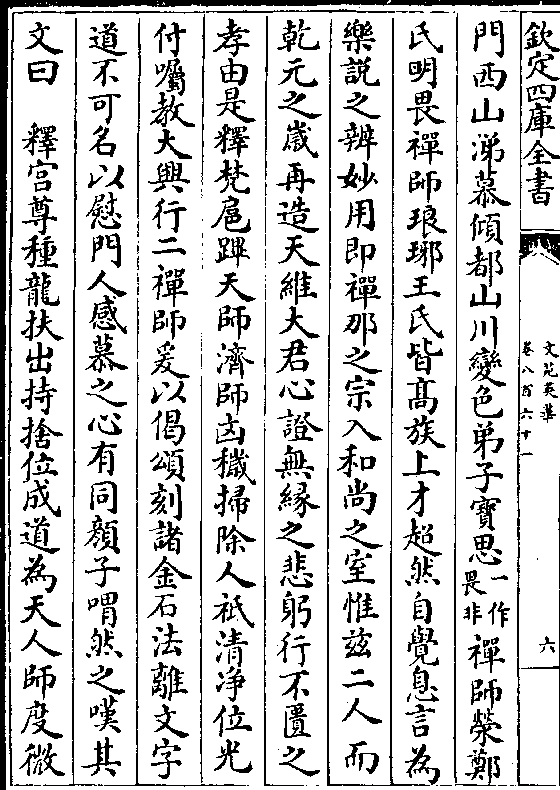 欽定四庫全書
文苑英華
卷八百六十一
六
門西山涕慕傾都山川變色弟子寶思一作畏非禪師滎鄭
氏明畏禪師琅琊王氏皆髙族上才超然自覺息言為
樂說之辨妙用即禪那之宗入和尚之室惟兹二人而
乾元之嵗再造天維大君心證無緣之悲躬行不匱之
孝由是釋梵扈蹕天師濟師凶穢掃除人祇清净位光
付囑教大興行二禪師爰以偈頌刻諸金石法離文字
道不可名以慰門人感慕之心有同顔子喟然之嘆其
文曰　釋宫尊種龍扶出持捨位成道為天人師度微